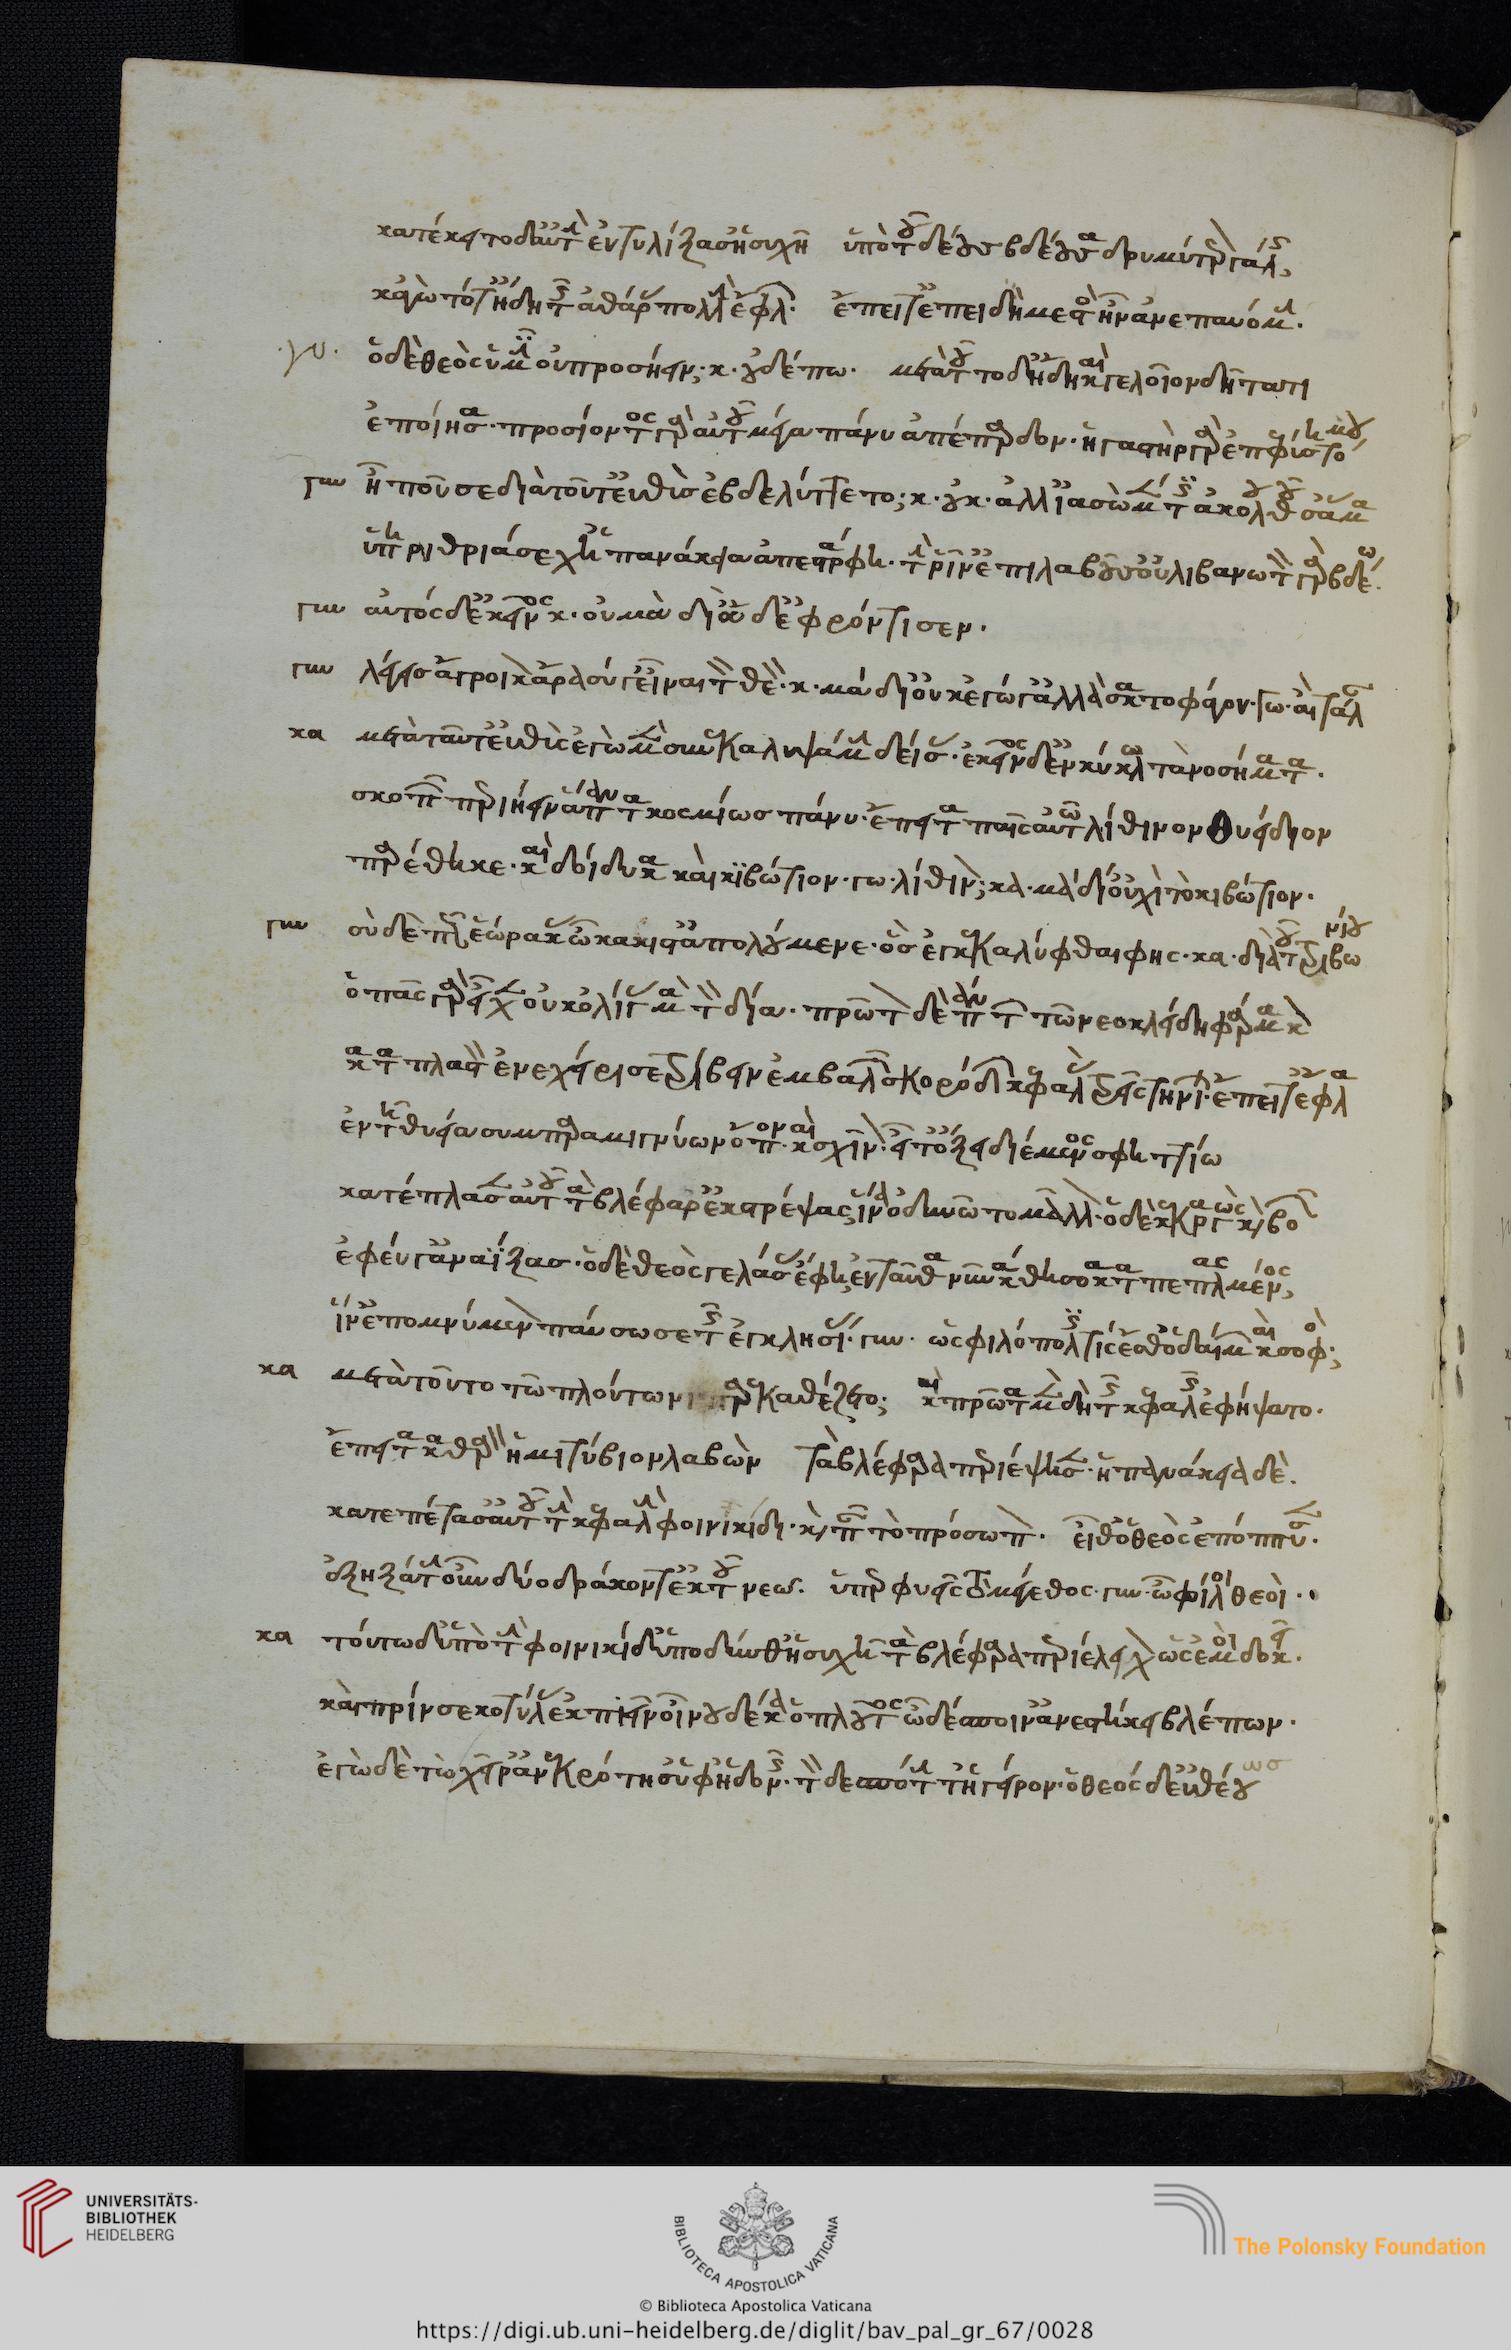 κατέκειτο δ' αὑτὴν ἐντυλίξασ' ἡσυχῆ ὑπὸ τοῦ δέους βδέουσα δριμύτερον γαλῆς,
κἀγὼ τότ' ἤδη τῆς ἀθάρας πολλὴν ἔφλων· ἔπειτ' ἐπειδὴ μεστὸς ἦν ἀνεπαυόμην·
γυ ὁ δὲ θεὸς ὑμῖν οὐ προσήειν; κ· οὐδέπω· μετὰ τοῦτο δ' ἤδη καὶ γελοῖον δῆτα τι
ἐποίησα· προσιόντος γὰρ αὐτοῦ μέγα πάνυ ἀπέπαρδον· ἡ γαστὴρ γὰρ ἐπεφύσητό μου
γυν ἦ που σε διὰ τοῦτ' εὐθὺς ἐβδελύττετο; κ· οὐκ· ἀλλ' ἰασὼ μέν τις ἀκολουθοῦσ' ἅμα
ὑπηρυθρίασε χἠ πανάκεια ἀπεστράφη· τὴν ῥῖν' ἐπιλαβοῦσ' οὐ λιβανωτὸν γὰρ βδέω·
γυν αὐτὸς δ' ἐκεῖνος κ· οὐ μὰ δί' οὐδ' ἐφρόντισεν·
γυν λέγεις ἄγροικον ἄρα σύ γ' εἶναι τὸν θεόν· κ· μὰ δί' οὐκ ἔγωγ' ἀλλὰ σκατοφάγον· γυ· αἲ τάλαν
κα μετὰ ταῦτ' εὐθὺς ἐγὼ μὲν συνεκαλυψάμην δείσας· ἐκεῖνος δ' ἐν κύκλω τὰ νοσήματα·
σκοπῶν περιήειν ἅπαντα κοσμίως πάνυ· ἔπειτα παῖς αὐτῶ λίθινον θυείδιον
παρέθηκε· καὶ δοίδυκα καὶ κιβώτιον· γυ· λίθινον; κα· μὰ δί' οὐχὶ τὸ κιβώτιον·
γυν σὺ δὲ πῶς ἑώρακας ὦ κάκιστ' ἀπολούμενε· ὃς ἐγκεκαλύφθαι φής· κα· διὰ τοῦ τριβωνίου
ὀπὰς γὰρ εἶχεν οὐκ ὀλίγας μὰ τὸν δία· πρῶτον δὲ πάντων τῶ νεοκλείδη φάρμακον
καταπλαστὸν ἐνεχείρισε τρίβειν ἐμβαλὼν σκορόδων κεφαλὰς τρεῖς τηνίων· ἔπειτ' ἔφλα
ἐν τῆ θυεία συμπαραμιγνύων ὀπὸν καὶ σχῖνον· εἶτ' ὄξει διέμενος σφηττίω
κατέπλασεν αὐτοῦ τὰ βλέφαρ' ἐκστρέψας ἵνα ὀδυνῶτο μᾶλλον· ὁ δὲ κεκραγὼς καὶ βοῶν
ἔφευγ' ἀναΐξας· ὁ δὲ θεὸς γελάσας ἔφη, ἐνταῦθα νῦν κάθησο καταπεπλασμένος,
ἵν' ἐπομνύμενον παύσω σε τῆς ἐκκλησίας· γυν· ὡς φιλόπολίς τίς ἐσθ' ὁ δαίμων καὶ σοφός;
κα μετὰ τοῦτο τῶ πλούτωνι παρεκαθέζετο; καὶ πρῶτα μὲν δὴ τῆς κεφαλῆς ἐφήψατο·
ἔπειτα καθαρὸν ἡμιτύβιον λαβὼν τὰ βλέφαρα περιέψησεν· ἡ πανάκεια δὲ
κατεπέτασ' αὐτοῦ τὴν κεφαλὴν φοινικίδι· καὶ πᾶν τὸ πρόσωπον· εἶθ' ὁ θεὸς ἐπόππυσεν·
ἐξηξάτην οὖν δύο δράκοντ' ἐκ τοῦ νεώ· ὑπερφυεῖς τὸ μέγεθος· γυν· ὦ φίλοι θεοί·
κα τούτω δ' ὑπὸ τὴν φοινικίδ' ὑποδύνθ' ἡσυχῆ τὰ βλέφαρα περιέλειχον ὡς ἐμοὶ δοκεῖ·
καὶ πρίν σε κοτύλας ἐκπιεῖν οἴνου δέκα ὁ πλοῦτος ὦ δέσποιν' ἀνεστήκει βλέπων·
ἐγὼ δὲ τὼ χεῖρ' ἀνεκρότησ' ὑφ' ἡδονῆς· τὸν δεσπότην τ' ἤγειρον· ὁ θεὸς δ' εὐθέως
UNIVERSITÄTS-
BIBLIOTHEK
HEIDELBERG
BIBLIOTECA APOSTOLICA VATICANA
The Polonsky Foundation
© Biblioteca Apostolica Vaticana
https://digi.ub.uni-heidelberg.de/diglit/bav_pal_gr_67/0028